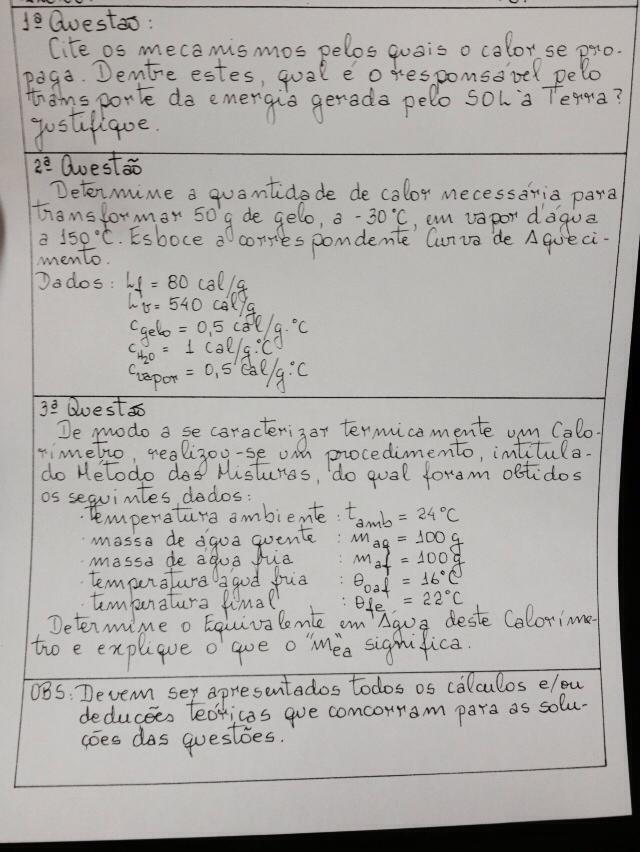 1ª Questão:
Cite os mecanismos pelos quais o calor se pro-
paga. Dentre estes, qual é o responsável pelo
transporte da energia gerada pelo SOL à Terra?
Justifique.
2ª Questão
Determine a quantidade de calor necessária para
transformar 50 g de gelo, a -30°C, em vapor d'água
a 150°C. Esboce a correspondente Curva de Aqueci-
mento.
Dados: Lf = 80 cal/g
Lv = 540 cal/g
cgelo = 0,5 cal/g.°C
cH2O = 1 cal/g.°C
cvapor = 0,5 cal/g.°C
3ª Questão
De modo a se caracterizar termicamente um Calo-
rímetro, realizou-se um procedimento, intitula-
do Método das Misturas, do qual foram obtidos
os seguintes dados:
· temperatura ambiente : tamb = 24°C
· massa de água quente : maq = 100 g
· massa de água fria : maf = 100 g
· temperatura água fria : θoaf = 16°C
· temperatura final : θfe = 22°C
Determine o Equivalente em Água deste Caloríme-
tro e explique o que o "mea" significa.
OBS: Devem ser apresentados todos os cálculos e/ou
deduções teóricas que concorram para as solu-
ções das questões.